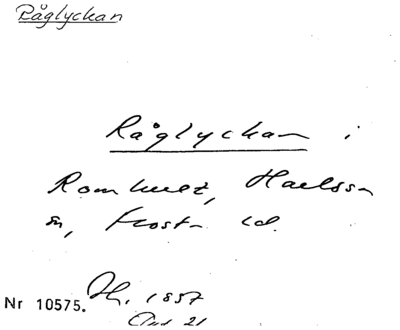 Råglyckan
Råglyckan i
Romhult, Harlösa
sn, Frosta hd.
Nr 10575. Jh. 1857
21